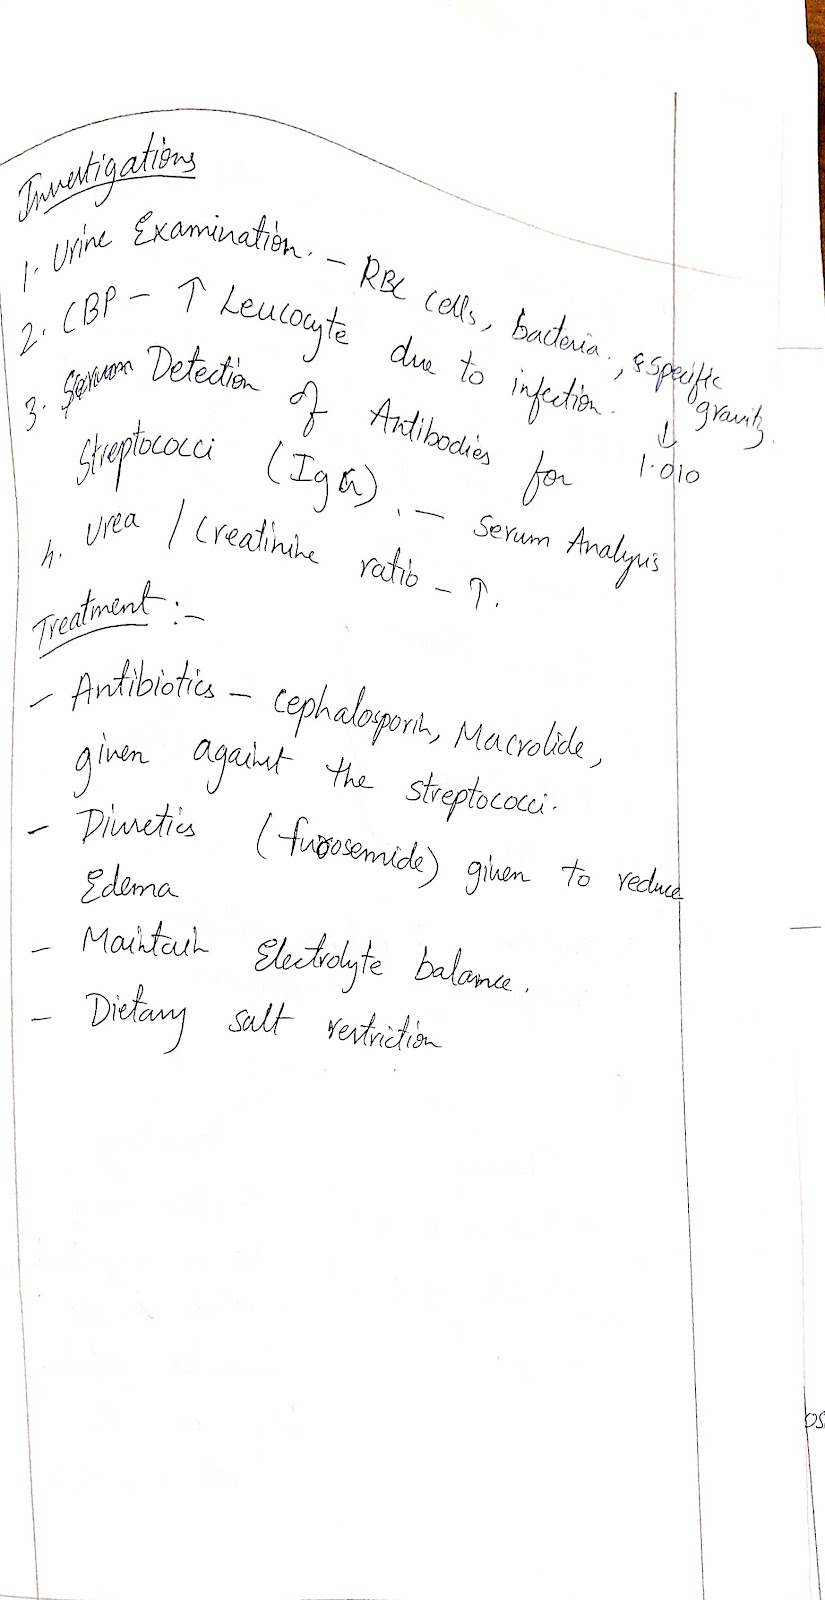 Investigations
1. Urine Examination. - RBC cells, bacteria., specific gravity.
↓
1.010
2. CBP - ↑ Leucocyte due to infection.
3. Serum Detection of Antibodies for
Streptococci (IgG). - Serum Analysis
4. Urea / Creatinine ratio - ↑.
Treatment :-
- Antibiotics - Cephalosporin, Macrolide,
given against the streptococci.
- Diuretics (furosemide) given to reduce
Edema
- Maintain Electrolyte balance.
- Dietary salt restriction
os